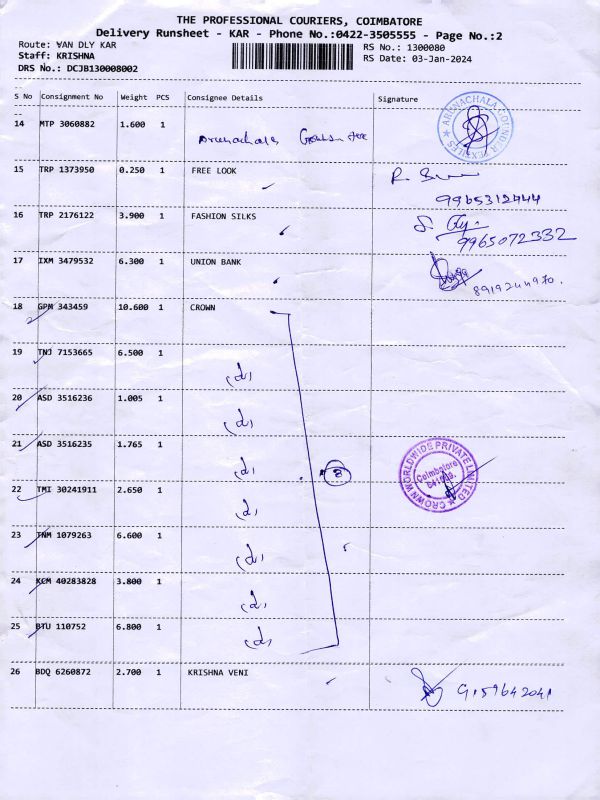 THE PROFESSIONAL COURIERS, COIMBATORE
Delivery Runsheet - KAR - Phone No.:0422-3505555 - Page No.:2
Route: VAN DLY KAR
RS No.: 1300080
Staff: KRISHNA
RS Date: 03-Jan-2024
DRS No.: DCJB130008002
S No Consignment No Weight PCS Consignee Details Signature
14 MTP 3060882 1.600 1
15 TRP 1373950 0.250 1 FREE LOOK
9965312444
16 TRP 2176122 3.900 1 FASHION SILKS
9965072332
17 IXM 3479532 6.300 1 UNION BANK
18 GPM 343459 10.600 1 CROWN
19 TNJ 7153665 6.500 1
20 ASD 3516236 1.005 1
21 ASD 3516235 1.765 1
8
CROWN WORLDWIDE PRIVATE LIMITED
Coimbatore
22 TMI 30241911 2.650 1
23 TNM 1079263 6.600 1
24 KCM 40283828 3.800 1
25 BTU 110752 6.800 1
26 BDQ 6260872 2.700 1 KRISHNA VENI
9159642041